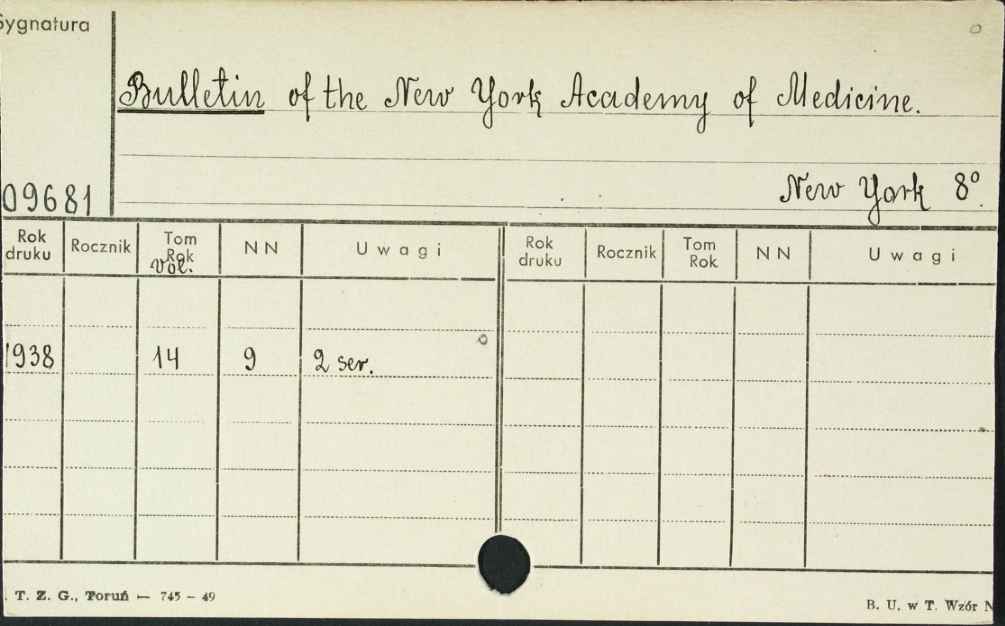 Sygnatura
Bulletin of the New York Academy of Medicine.
New York 8°.
09681
Rok druku Rocznik Tom Rok vol. NN Uwagi Rok druku Rocznik Tom Rok NN Uwagi
1938 14 9 2 ser.
T. Z. G., Toruń — 745 – 49
B. U. w T. Wzór N